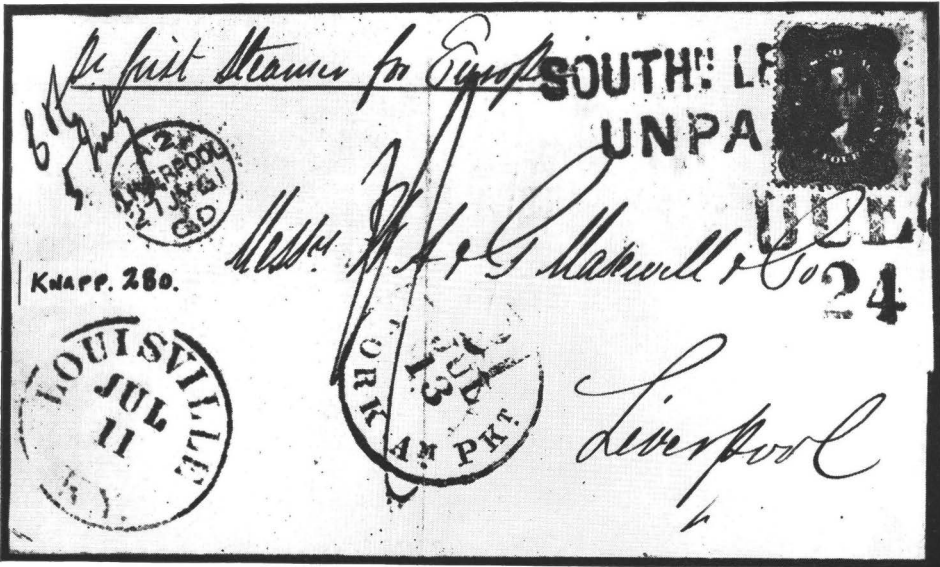 Pr first Steamer for Europe
SOUTHN LE
UNPA
FOUR
JUL
24
LIVERPOOL
27 JY 61
Messrs W A & G Maxwell & Co
KNAPP. 280.
LOUISVILLE
JUL
11
KY.
YORK AM PKT
JUL
13
Liverpool